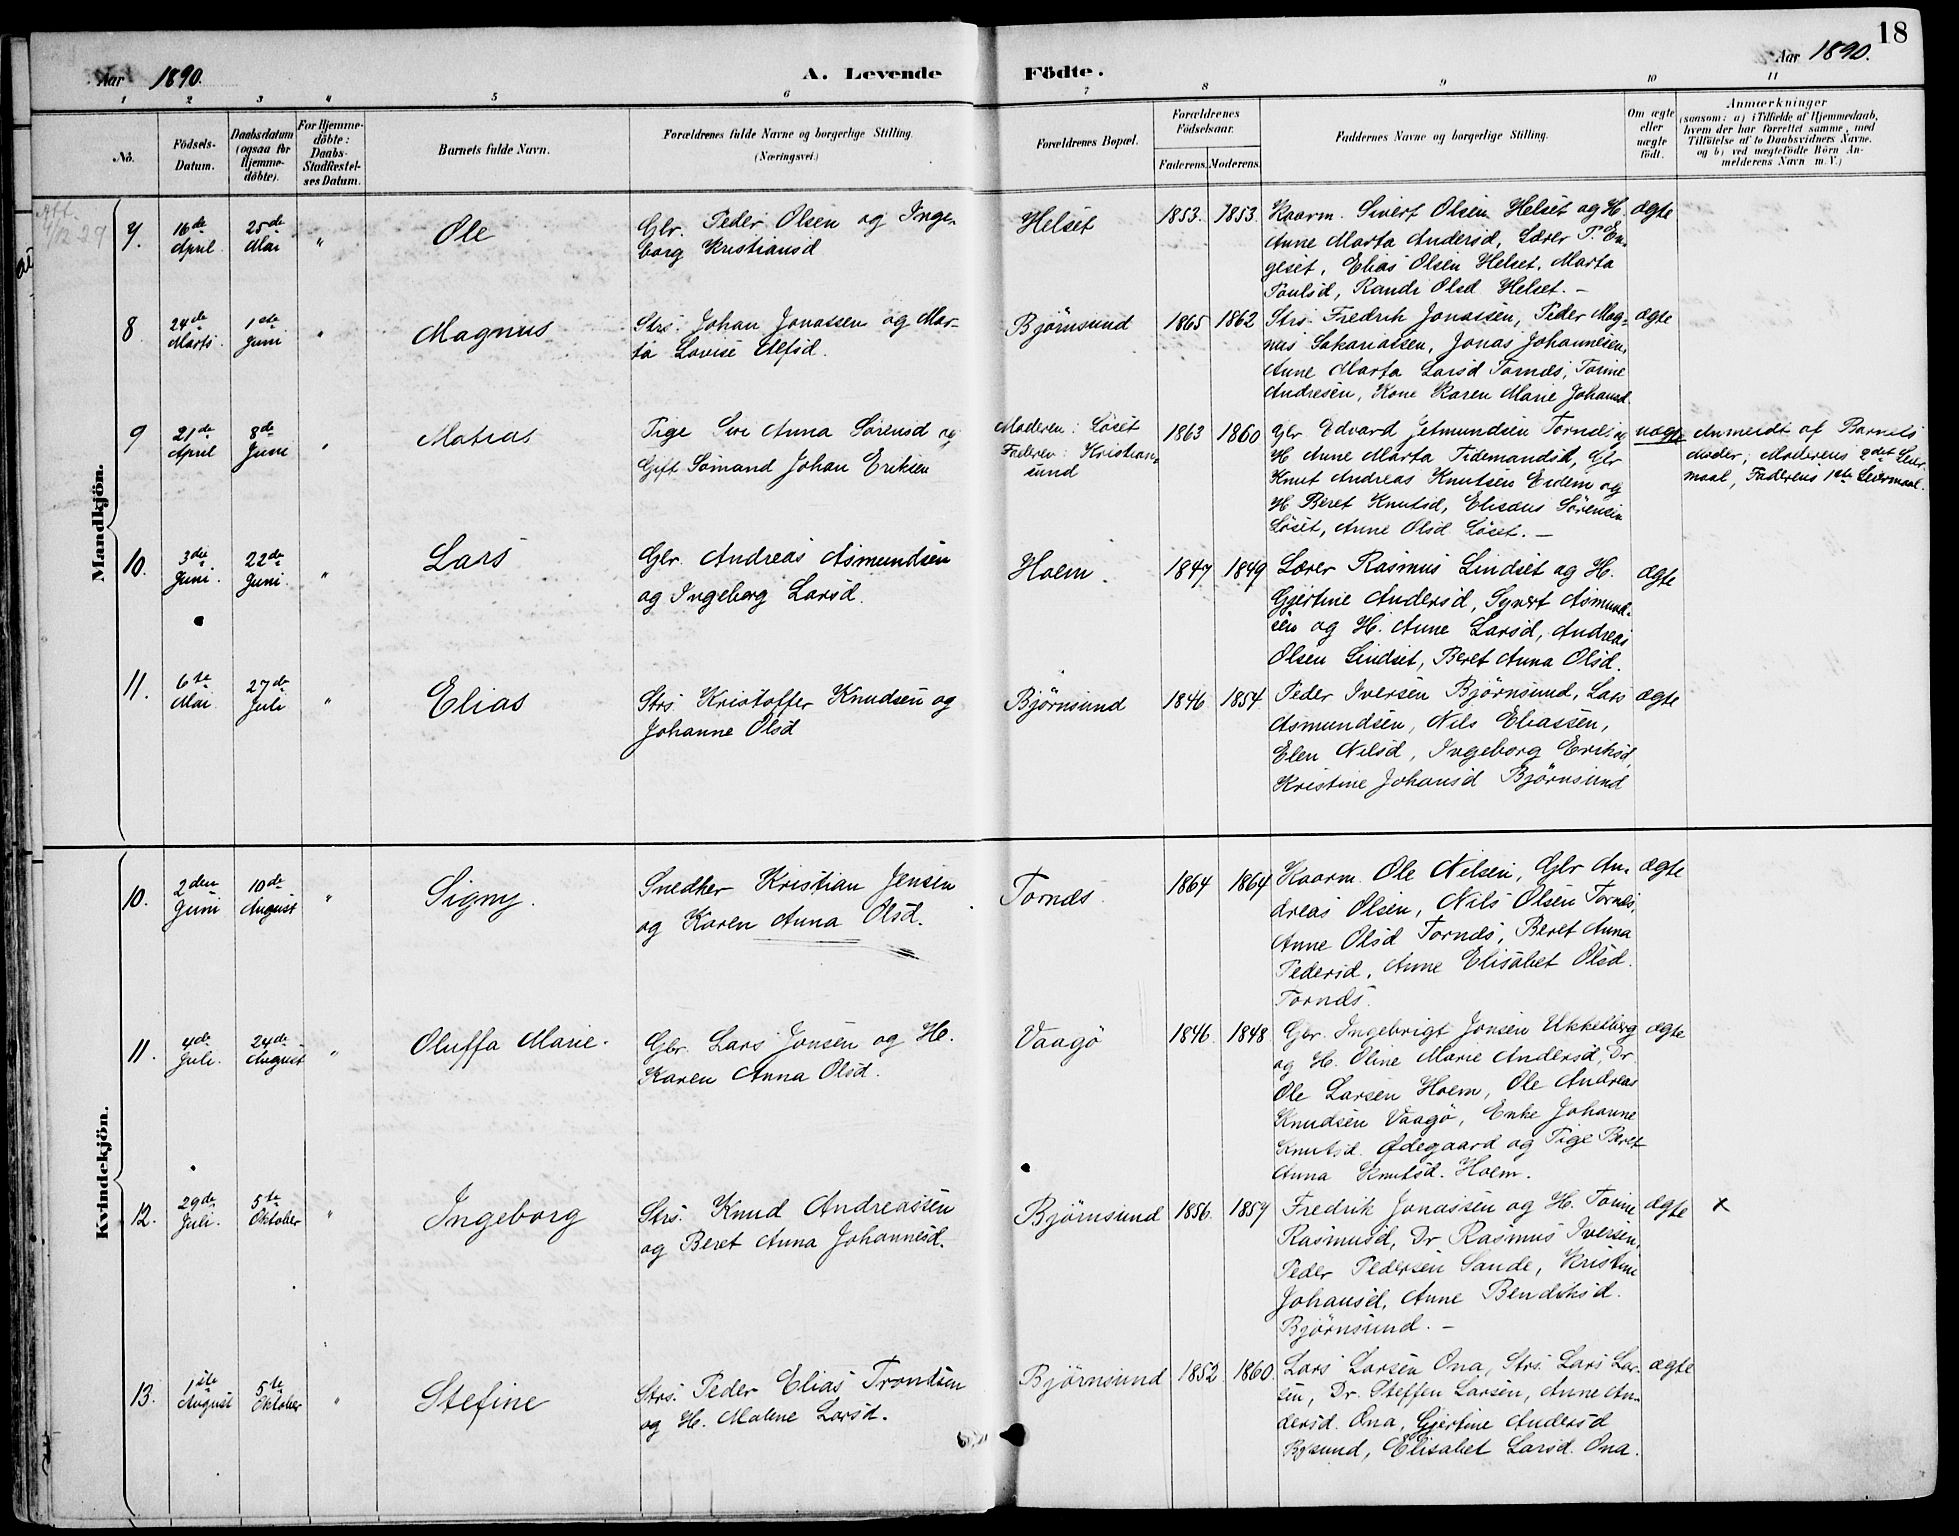 18
Aar 1890.
A. Levende Födte.
Aar 1890.
1 2 3 4 5 6 7 8 9 10 11
No.
Födsels-
Datum.
Daabsdatum
(ogsaa for
Hjemme-
döbte).
For Hjemme-
döbte:
Daabs-
Stadfæstel-
ses Datum.
Barnets fulde Navn.
Forældrenes fulde Navne og borgerlige Stilling.
(Næringsvei.)
Forældrenes Bopæl.
Forældrenes
Födselsaar.
Faderens. Moderens.
Faddernes Navne og borgerlige Stilling.
Om ægte
eller
uægte
födt.
Anmærkninger
(saasom: a) i Tilfælde af Hjemmedaab,
hvem der har forrettet samme, med
Tilföielse af to Daabsvidners Navne.
og b) ved uægtefödte Börn An-
melderens Navn m. V.)
Mandkjön.
Att.
4/12 29
7. 16de April 25de Mai "
Ole
Gbr. Peder Olsen og Inge-
borg Kristiansd
Helset
1853. 1853.
Kaarm. Sivert Olsen Helset og H.
Anne Marta Andersd, Lærer P. En-
geset, Elias Olsen Helset, Marta
Paulsd, Randi Olsd Helset. –
ægte
8 24de Marts 1ste Juni "
Magnus
Strs. Johan Jonassen og Mar-
ta Lovise Alfsd.
Bjørnsund
1865 1862
Strs. Fredrik Jonassen, Peder Mag-
nus Sakariassen, Jonas Johannesen,
Anne Marta Larsd Tornes, Torine
Andresen, Kone Karen Marie Johansd
ægte
9 21de April 8de Juni "
Matias
Pige Siri Anna Sørensd og
Gift Sømand Johan Eriksen
Moderen: Løset
Faderen: Kristian-
sund
1863 1860
Gbr Edvard Getmundsen Tornes og
H Anne Marta Tidemandsd, Gbr
Knut Andreas Knutsen Eidem og
H Beret Knutsd, Elisæus Sørensen
Løset, Anne Olsd Løset. –
uægte
Anmeldt af Barnets
Moder; Moderens 2det Leier-
maal, Faderens 1ste Leiermaal.
10. 3die Juni. 22de Juni. "
Lars
Gbr. Andreas Asmundsen
og Ingeborg Larsd.
Hoem.
1847 1849
Lærer Rasmus Lindset og H.
Gjertine Andersd, Syvert Asmund-
sen og H. Anne Larsd, Andreas
Olsen Lindset, Beret Anna Olsd.
ægte
11. 6te Mai 27de Juli "
Elias
Strs Kristoffer Knudsen og
Johanne Olsd
Bjørnsund
1846 1854
Peder Iversen Bjørnsund, Lars
Asmundsen, Nils Eliassen,
Elen Nilsd, Ingeborg Eriksd,
Kristine Johansd Bjørnsund
ægte
Kvindekjön.
10. 2den Juni 10de August "
Signy.
Snedker Kristian Jensen
og Karen Anna Olsd.
Tornes.
1864 1864
Kaarm. Ole Nilsen, Gbr An-
dreas Olsen, Nils Olsen Tornes,
Anne Olsd Tornes, Beret Anna
Pedersd, Anne Elisabet Olsd.
Tornes.
ægte
11. 4de Juli. 24de August "
Oluffa Marie.
Gbr. Lars Jonsen og H.
Karen Anna Olsd.
Vaagø
1846 1848
Gbr. Ingebrigt Jonsen Ukkelberg
og H. Oline Marie Andersd, Dr.
Ole Larsen Hoem, Ole Andreas
Knudsen Vaagø, Enke Johanne
Knutsd. Ødegaard og Pige Beret
Anna Knutsd. Hoem.
ægte
12. 29de Juli. 5te Oktober "
Ingeborg
Strs. Knud Andreassen
og Beret Anna Johannesd.
Bjørnsund
1856. 1857
Fredrik Jonassen og H. Torine
Rasmusd, Dr Rasmus Iversen,
Peder Pedersen Sande, Kristine
Johansd, Anne Bendiksd.
Bjørnsund. –
ægte
x
13. 1ste August 5te Oktober "
Stefine
Strs. Peder Elias Trondsen
og H. Malene Larsd.
Bjørnsund
1852 1860.
Lars Larsen Ona, Strs. Lars Lar-
sen, Dr. Steffen Larsen, Anne An-
dersd. Ona, Gjertine Andersd
Bjsund, Elisabet Larsd. Ona.
ægte